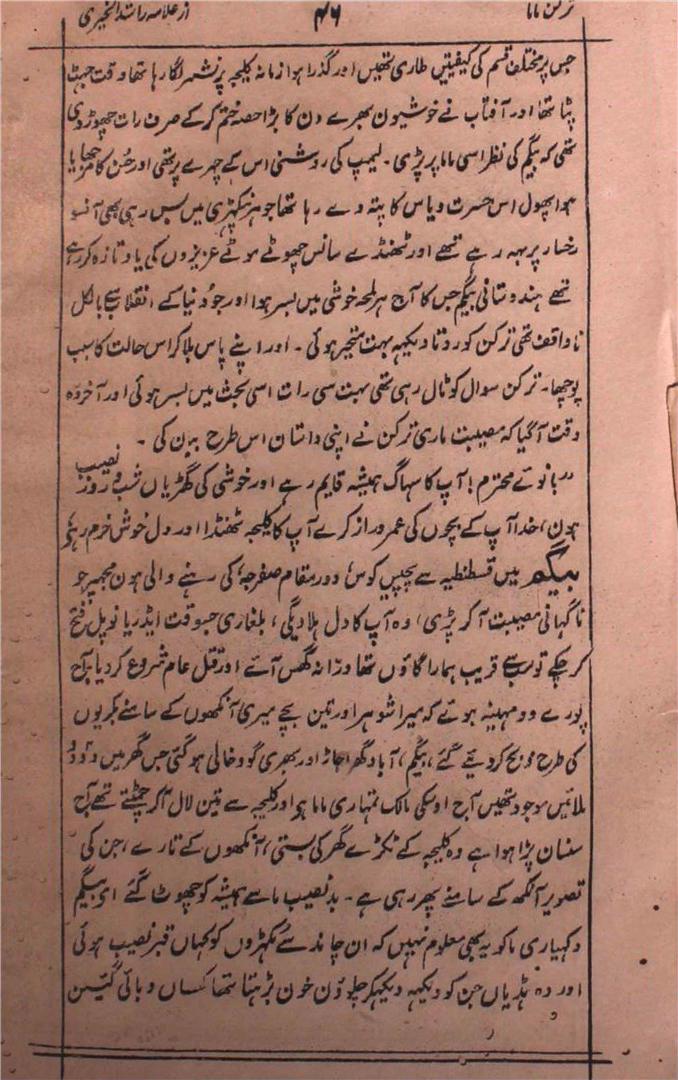 ترکن ماما ۴۶ از علامہ راشد الخیری
جس پر مختلف قسم کی کیفیتیں طاری تھیں اور گذرا ہوا زمانہ کلیجہ پر نشتر لگا رہا تھا وقت جھٹ
پٹا تھا اور آفتاب نے خوشیون بھرے دن کا بڑا حصہ ختم کر کے صرف رات چھوڑ دی
تھی کہ بیگم کی نظر اسی ماما پر پڑی ۔ لیمپ کی روشنی اس کے چہرے پر تھی اور حُسن کا مرجھایا
ہوا پھول اس حسرت و یاس کا پتہ دے رہا تھا جو ہر پنکھڑی میں بس رہی تھی آنسو
رخسار پر بہہ رہے تھے اور ٹھنڈے سانس چھوٹے ہوئے عزیزوں کی یاد تازہ کر رہے
تھے ہندوستانی بیگم جس کا آج ہر لمحہ خوشی میں بسر ہوا اور جو دُنیا کے انقلاب سے بالکل
ناواقف تھی ترکن کو روتا دیکہہ بہت متحیر ہوئی ۔ اور اپنے پاس بلا کر اس حالت کا سبب
پوچھا۔ ترکن سوال کو ٹال رہی تھی بہت سی رات اسی بحث میں بسر ہوئی اور آخر وہ
وقت آگیا کہ مصیبت ماری ترکن نے اپنی داستان اس طرح بیان کی ۔
"بانوئے محترم! آپ کا سہاگ ہمیشہ قایم رہے اور خوشی کی گھڑیاں شب و روز نصیب
ہون، خدا آپ کے بچوں کی عمر دراز کرے آپ کا کلیجہ ٹھنڈا اور دل خوش خرم رہے
بیگم میں قسطنطیہ سے پچپیں کوس دور مقام صفرجہ کی رہنے والی ہون مجھپر جو
ناگہانی مصیبت آ کر پڑی، وہ آپ کا دل ہلا دیگی، بلغاری جسوقت ایڈریا نوپل فتح
کر چکے تو سب سے قریب ہمارا گاؤں تھا درّانہ گھس آئے اور قتل عام شروع کر دیا، آج
پورے دو مہینہ ہوئے کہ میرا شوہر اور تین بچے میری آنکھوں کے سامنے بکریوں
کی طرح ذبح کر دیئے گئے، بیگم، آباد گھر اجاڑ اور بھری گود خالی ہو گئی جس گھر میں دو دو
مامائیں موجود تھیں آج اوسکی مالک تمہاری ماما ہو اور کلیجہ سے تین لال آکر چمٹتے تھے آج
سنسان پڑا ہوا ہے وہ کلیجہ کے ٹکڑے گھر کی بستی، آنکھوں کے تارے، جن کی
تصویر آنکھ کے سامنے پھر رہی ہے ۔ بدنصیب ماں سے ہمیشہ کو چھوٹ گئے ای بیگم
دکہیاری ماں کو یہ بھی معلوم نہیں کہ ان چاند سے مُکھڑوں کو کہاں قبر نصیب ہوئی
اور وہ ہڈیاں جن کو دیکہہ دیکہکر چلؤون خون بڑہتا تھا کہساں دبائی گئیں